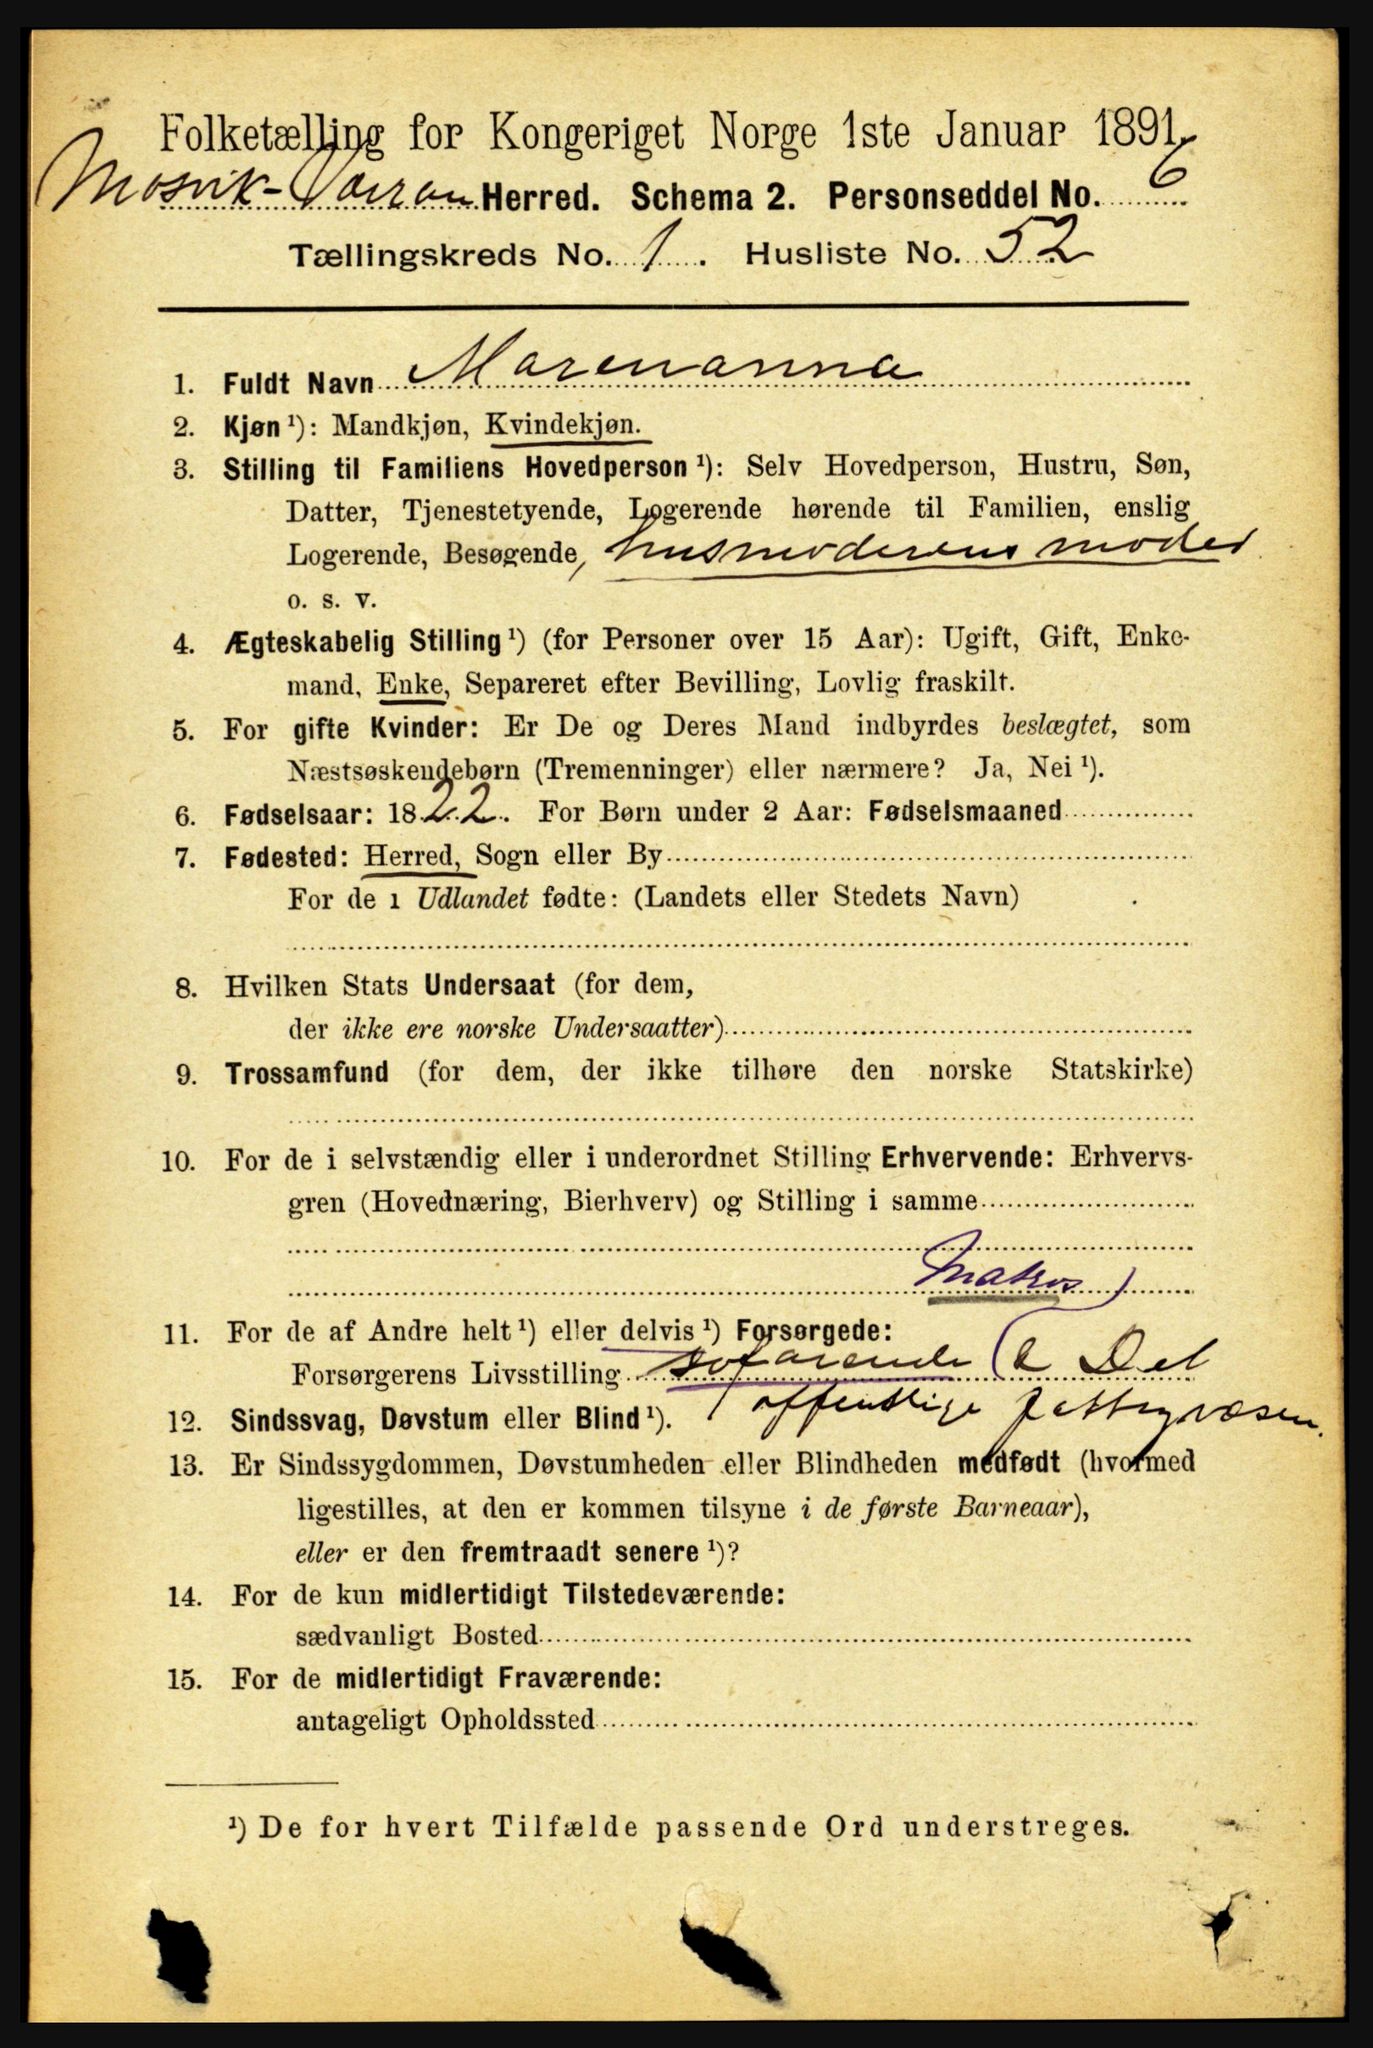 Folketælling for Kongeriget Norge 1ste Januar 1891.
Mosvik-Værran Herred. Schema 2. Personseddel No. 6
Tællingskreds No. 1. Husliste No. 52
1. Fuldt Navn Marenanna
2. Kjøn ¹): Mandkjøn, Kvindekjøn.
3. Stilling til Familiens Hovedperson ¹): Selv Hovedperson, Hustru, Søn,
Datter, Tjenestetyende, Logerende hørende til Familien, enslig
Logerende, Besøgende, husmoderens moder
o. s. v.
4. Ægteskabelig Stilling ¹) (for Personer over 15 Aar): Ugift, Gift, Enke-
mand, Enke, Separeret efter Bevilling, Lovlig fraskilt.
5. For gifte Kvinder: Er De og Deres Mand indbyrdes beslægtet, som
Næstsøskendebørn (Tremenninger) eller nærmere? Ja, Nei ¹).
6. Fødselsaar: 1822. For Børn under 2 Aar: Fødselsmaaned
7. Fødested: Herred, Sogn eller By
For de i Udlandet fødte: (Landets eller Stedets Navn)
8. Hvilken Stats Undersaat (for dem,
der ikke ere norske Undersaatter)
9. Trossamfund (for dem, der ikke tilhøre den norske Statskirke)
10. For de i selvstændig eller i underordnet Stilling Erhvervende: Erhvervs-
gren (Hovednæring, Bierhverv) og Stilling i samme
Matros)
11. For de af Andre helt ¹) eller delvis ¹) Forsørgede:
Forsørgerens Livsstilling søfarende ( Del
offentlige fattigvæsen.
12. Sindssvag, Døvstum eller Blind ¹).
13. Er Sindssygdommen, Døvstumheden eller Blindheden medfødt (hvormed
ligestilles, at den er kommen tilsyne i de første Barneaar),
eller er den fremtraadt senere ¹)?
14. For de kun midlertidigt Tilstedeværende:
sædvanligt Bosted
15. For de midlertidigt Fraværende:
antageligt Opholdssted
¹) De for hvert Tilfælde passende Ord understreges.